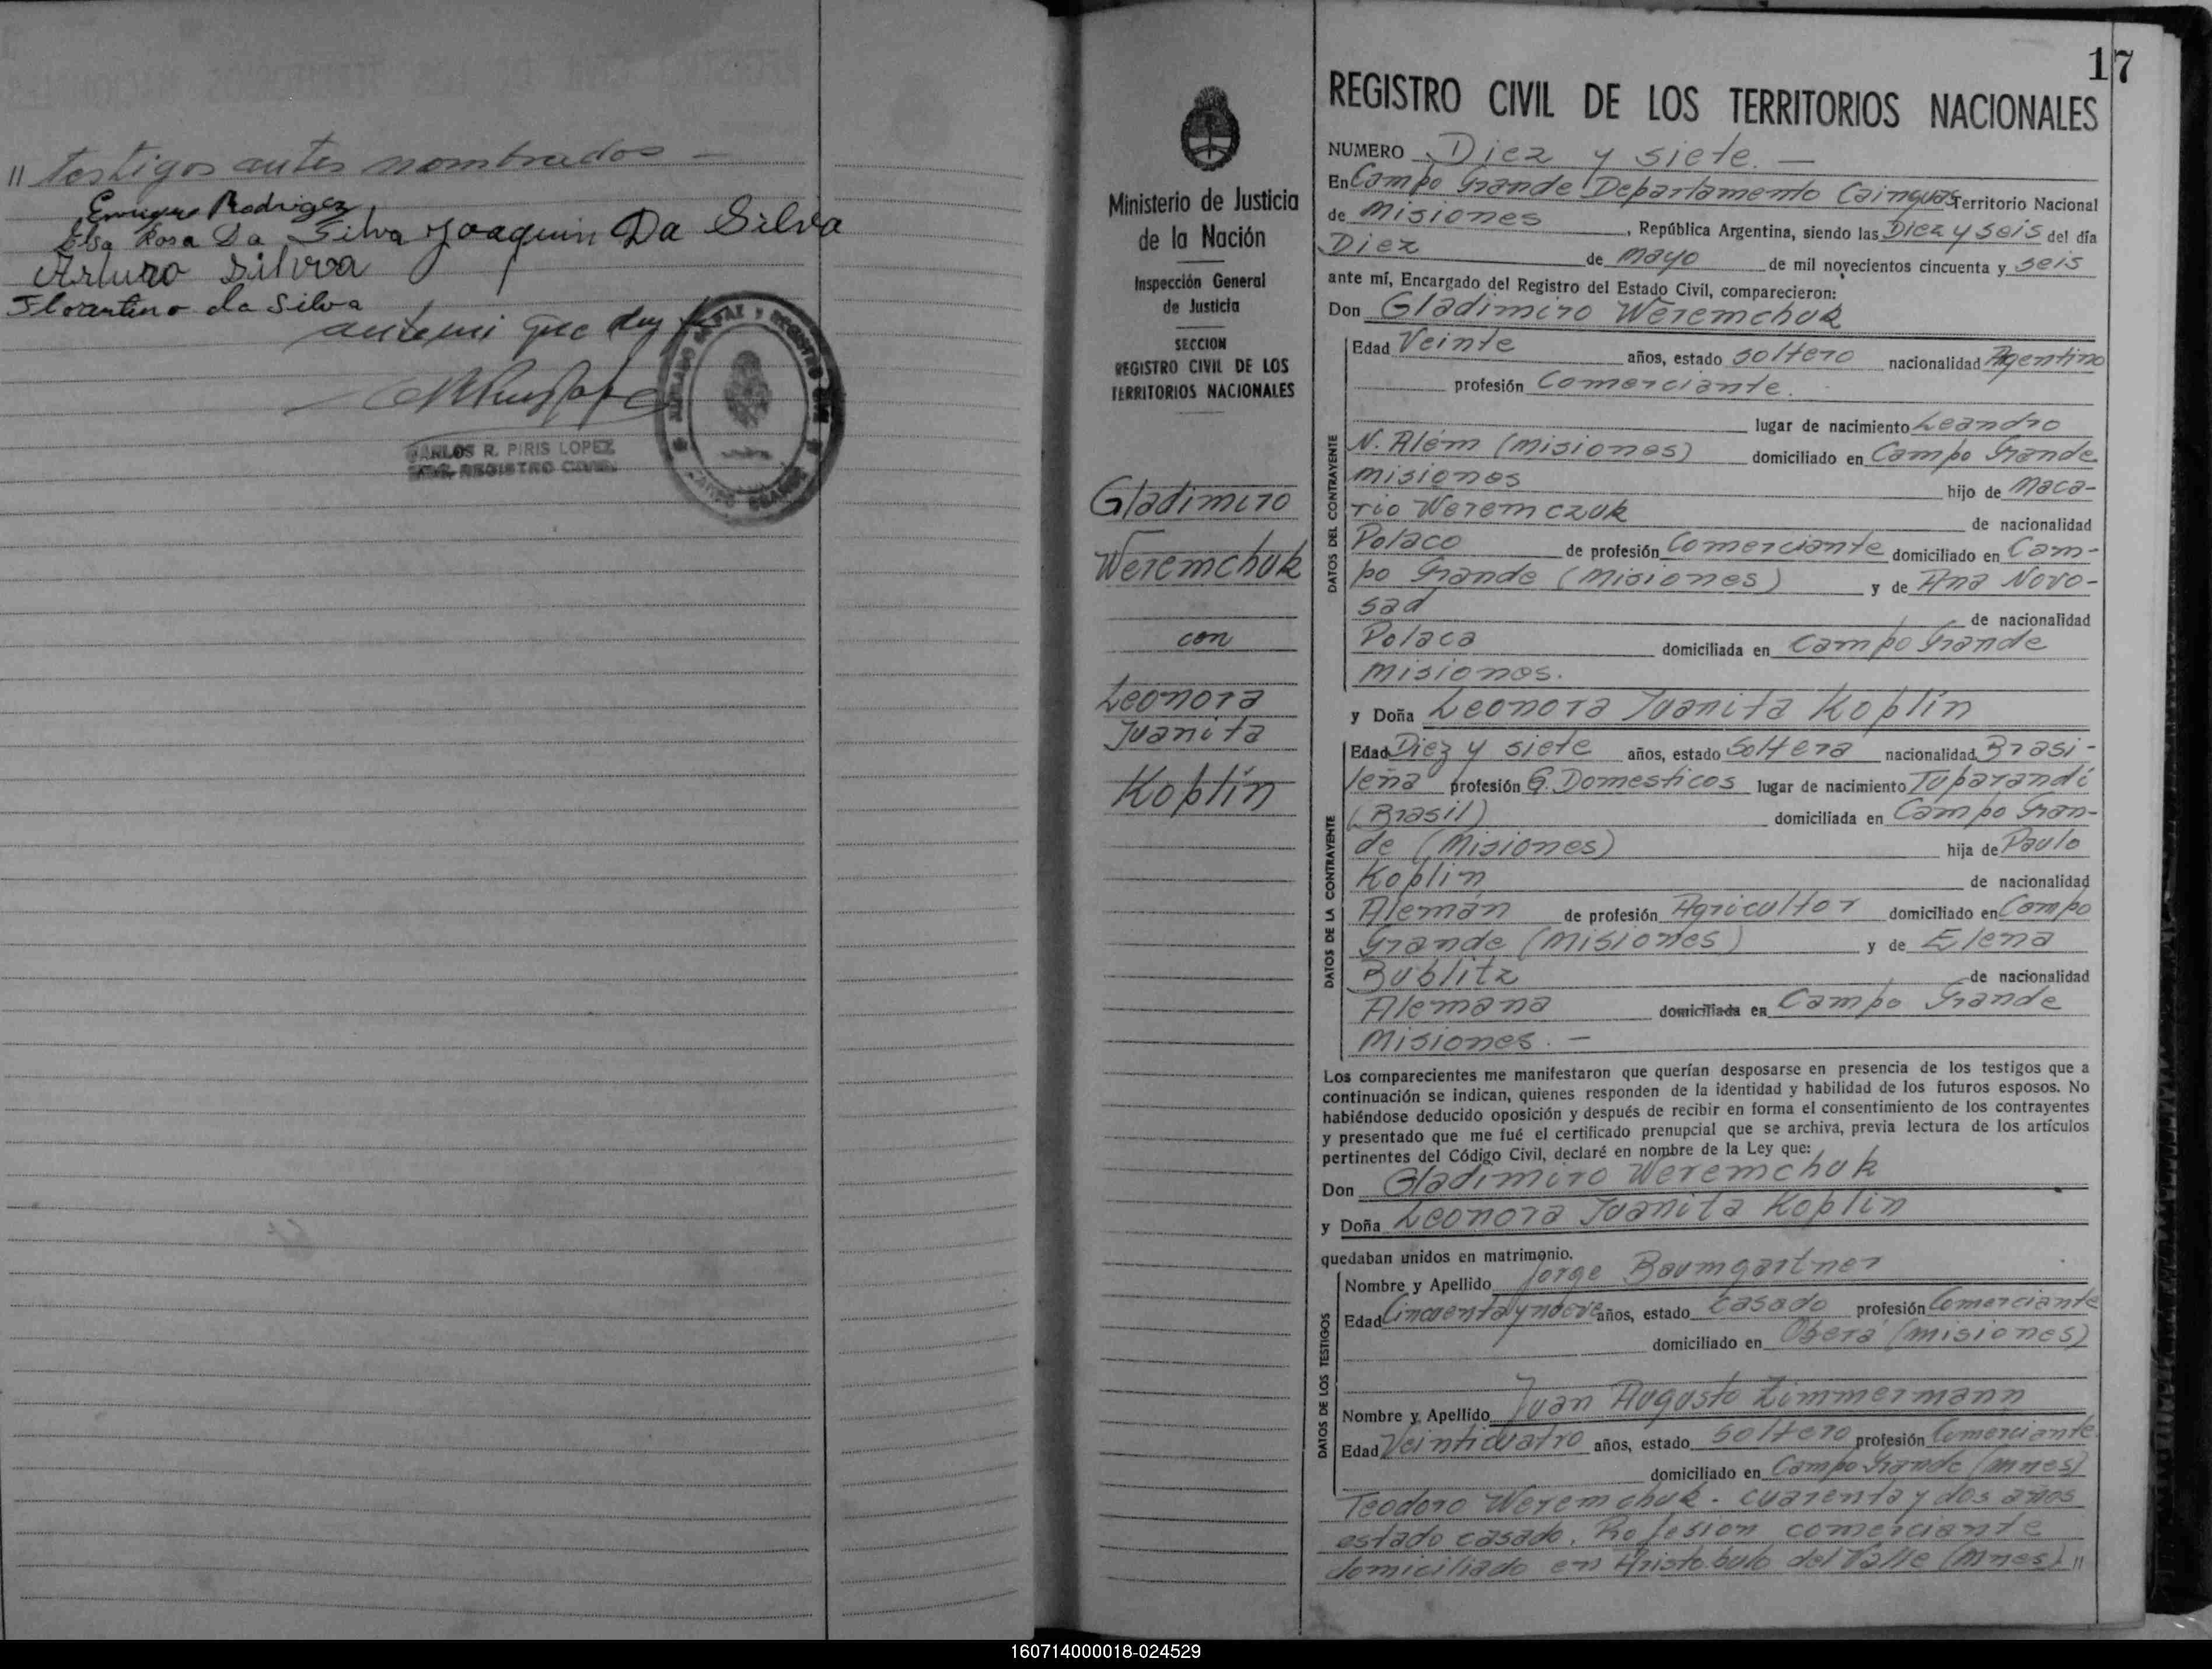 " testigos antes nombrados -
Enrique Rodrigez
Elsa Rosa Da Silva Joaquin Da Silva
Arturo Silvva
Florentino da Silva
ante mi que doy fe
CARLOS R. PIRIS LOPEZ
ENC. REGISTRO CIVIL
17
Ministerio de Justicia
de la Nación
Inspección General
de Justicia
SECCION
REGISTRO CIVIL DE LOS
TERRITORIOS NACIONALES
Gladimiro
Weremchuk
con
Leonora
Juanita
Koplín
REGISTRO CIVIL DE LOS TERRITORIOS NACIONALES
NUMERO Diez y siete. -
En Campo Grande Departamento Cainguas Territorio Nacional
de Misiones, República Argentina, siendo las Diez y seis del día
Diez de mayo de mil novecientos cincuenta y seis
ante mí, Encargado del Registro del Estado Civil, comparecieron:
Don Gladimiro Weremchuk
DATOS DEL CONTRAYENTE
Edad Veinte años, estado soltero nacionalidad Argentino
profesión Comerciante.
lugar de nacimiento Leandro
N. Além (Misiones) domiciliado en Campo Grande
Misiones hijo de Maca-
rio Weremczuk de nacionalidad
Polaco de profesión Comerciante domiciliado en Cam-
po Grande (Misiones) y de Ana Novo-
sad de nacionalidad
Polaca domiciliada en Campo Grande
Misiones.
y Doña Leonora Juanita Koplín
DATOS DE LA CONTRAYENTE
Edad Diez y siete años, estado Soltera nacionalidad Brasi-
leña profesión Q. Domesticos lugar de nacimiento Tuparandí
(Brasil) domiciliada en Campo Gran-
de (Misiones) hija de Paulo
Koplin de nacionalidad
Alemán de profesión Agricultor domiciliado en Campo
Grande (Misiones) y de Elena
Bublitz de nacionalidad
Alemana domiciliada en Campo Grande
Misiones. -
Los comparecientes me manifestaron que querían desposarse en presencia de los testigos que a
continuación se indican, quienes responden de la identidad y habilidad de los futuros esposos. No
habiéndose deducido oposición y después de recibir en forma el consentimiento de los contrayentes
y presentado que me fué el certificado prenupcial que se archiva, previa lectura de los artículos
pertinentes del Código Civil, declaré en nombre de la Ley que:
Don Gladimiro Weremchuk
y Doña Leonora Juanita Koplin
quedaban unidos en matrimonio.
DATOS DE LOS TESTIGOS
Nombre y Apellido Jorge Baumgartner
Edad Cincuenta y nueve años, estado Casado profesión Comerciante
domiciliado en Oberá (Misiones)
Nombre y Apellido Juan Augusto Zimmermann
Edad Veinticuatro años, estado Soltero profesión Comerciante
domiciliado en Campo Grande (Mnes)
Teodoro Weremchuk. cuarenta y dos años
estado casado. Profesion comerciante
domiciliado en Aristobulo del Valle (Mnes) "
160714000018-024529